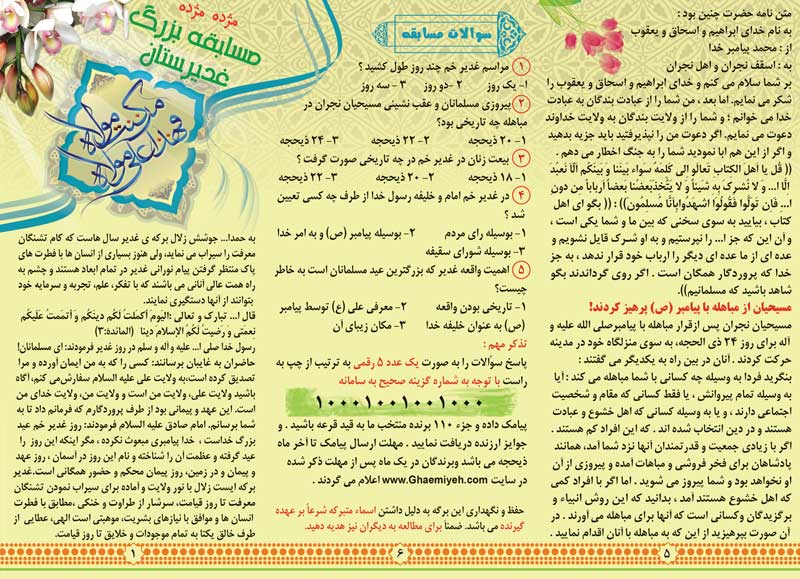 متن نامه حضرت چنین بود :
به نام خدای ابراهیم و اسحاق و یعقوب
از : محمد پیامبر خدا
به : اسقف نجران و اهل نجران
بر شما سلام می کنم و خدای ابراهیم و اسحاق و یعقوب را
شکر می نمایم. اما بعد ، من شما را از عبادت بندگان به عبادت
خدا می خوانم ؛ و شما را از ولایت بندگان به ولایت خداوند
دعوت می نمایم. اگر دعوت من را نپذیرفتید باید جزیه بدهید
و اگر از این هم ابا نمودید شما را به جنگ اخطار می دهم .
(( قُل یا اهلَ الکتاب تعالَو الی کَلمَة سواء بَیننَا و بَینَکُم اَلّا نَعبُدَ
اِلّا ا... و لا نُشرک به شَیئاً و لا یَتَّخذَبَعضُنا بَعضاً اَرباباً مِن دونِ
ا... فَاِن تَولَّوا فَقُولُوا اشهَدُواباَنَّا مُسلِمُون)) : (( بگو ای اهل
کتاب ، بیایید به سوی سخنی که بین ما و شما یکی است ،
و آن این که جز ا... را نپرستیم و به او شرک قایل نشویم و
عده ای از ما عده ای دیگر را ارباب خود قرار ندهد ، به جز
خدا که پروردگار همگان است . اگر روی گرداندند بگو
شاهد باشید که مسلمانیم)).
مسیحیان از مباهله با پیامبر (ص) پرهیز کردند!
مسیحیان نجران پس ازقرار مباهله با پیامبرصلی الله علیه و
آله برای روز ۲۴ ذی الحجه، به سوی منزلگاه خود در مدینه
حرکت کردند . آنان در بین راه به یکدیگر می گفتند :
بنگرید فردا به وسیله چه کسانی با شما مباهله می کند : آیا
به وسیله تمام پیروانش ، یا فقط کسانی که مقام و شخصیت
اجتماعی دارند ، و یا به وسیله کسانی که اهل خشوع و عبادت
هستند و در دین انتخاب شده اند . که این افراد کم هستند .
اگر با زیادی جمعیت و قدرتمندان آنها نزد شما آمد، همانند
پادشاهان برای فخر فروشی و مباهات آمده و پیروزی از آن
او نخواهد بود و شما پیروز می شوید . اما اگر با افراد کمی
که اهل خشوع هستند آمد ، بدانید که این روش انبیاء و
برگزیدگان وکسانی است که آنها برای مباهله می آورند . در
آن صورت بپرهیزید از این که به مباهله با آنان اقدام نمایید .
۵
سوالات مسابقه
۱ مراسم غدیر خم چند روز طول کشید ؟
۱- یک روز ۲- دو روز ۳- سه روز
۲ پیروزی مسلمانان و عقب نشینی مسیحیان نجران در
مباهله چه تاریخی بود؟
۱- ۲۰ ذیحجه ۲- ۲۲ ذیحجه ۳- ۲۴ ذیحجه
۳ بیعت زنان در غدیر خم در چه تاریخی صورت گرفت ؟
۱- ۱۸ ذیحجه ۲- ۲۰ ذیحجه ۳- ۲۲ ذیحجه
۴ در غدیر خم امام و خلیفه رسول خدا از طرف چه کسی تعیین
شد ؟
۱- بوسیله رای مردم ۲- بوسیله پیامبر (ص) و به امر خدا
۳- بوسیله شورای سقیفه
۵ اهمیت واقعه غدیر که بزرگترین عید مسلمانان است به خاطر
چیست؟
۱- تاریخی بودن واقعه ۲- معرفی علی (ع) توسط پیامبر
(ص) به عنوان خلیفه خدا ۳- مکان زیبای آن
تذکر مهم :
پاسخ سؤالات را به صورت یک عدد ۵ رقمی به ترتیب از چپ به
راست با توجه به شماره گزینه صحیح به سامانه
۱۰۰۰۱۰۰۱۰۰۱۰۰۰
پیامک داده و جزء ۱۱۰ برنده منتخب ما به قید قرعه باشید . و
جوایز ارزنده دریافت نمایید . مهلت ارسال پیامک تا آخر ماه
ذیحجه می باشد وبرندگان در یک ماه پس از مهلت ذکر شده
در سایت www.Ghaemiyeh.com اعلام می گردند .
حفظ و نگهداری این برگه به دلیل داشتن اسماء متبرکه شرعاً بر عهده
گیرنده می باشد. ضمناً برای مطالعه به دیگران نیز هدیه دهید.
۶
مژده مژده
مسابقه بزرگ
غدیرستان
من کنت مولاه
فهذا علی مولاه
به حمدا... جوشش زلال برکه ی غدیر سال هاست که کام تشنگان
معرفت را سیراب می نماید، ولی هنوز بسیاری از انسان ها با فطرت های
پاک منتظر گرفتن پیام نورانی غدیر در تمام ابعاد هستند و چشم به
راه همت عالی آنانی می باشند که با تفکر، علم، تجربه و سرمایه خود
بتوانند از آنها دستگیری نمایند.
قال ا... تبارک و تعالی :اَلیَومَ اَکمَلتُ لَکُم دینَکُم و اَتمَمتُ عَلَیکُم
نِعمَتی و رَضیتُ لَکُمُ الإسلامَ دیناً (المائدة:۳)
رسول خدا صلی ا... علیه و آله و سلم در روز غدیر فرمودند: ای مسلمانان!
حاضران به غایبان برسانند: کسی را که به من ایمان آورده و مرا
تصدیق کرده است،به ولایت علی علیه السلام سفارش‌می کنم، آگاه
باشید ولایت علی، ولایت من است و ولایت من، ولایت خدای من
است. این عهد و پیمانی بود از طرف پروردگارم که فرمانم داد تا به
شما برسانم. امام صادق علیه السلام فرمودند: روز غدیر خم عید
بزرگ خداست ، خدا پیامبری مبعوث نکرده ، مگر اینکه این روز را
عید گرفته و عظمت آن را شناخته و نام این روز در آسمان ، روز عهد
و پیمان و در زمین، روز پیمان محکم و حضور همگانی است.غدیر
برکه ایست زلال با نور ولایت و آماده برای سیراب نمودن تشنگان
معرفت تا روز قیامت، سرشار از طراوت و خنکی ،مطابق با فطرت
انسان ها و موافق با نیازهای بشریت، موهبتی است الهی، عطایی از
طرف خالق یکتا به تمام موجودات و خلایق تا روز قیامت.
۱